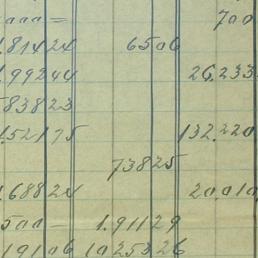 000 = 700
1.81424 6506
1.99244 26.233
83823
1.52175 132.220
73825
1.68824 20.010
500 - 1.91129
19106 1025326